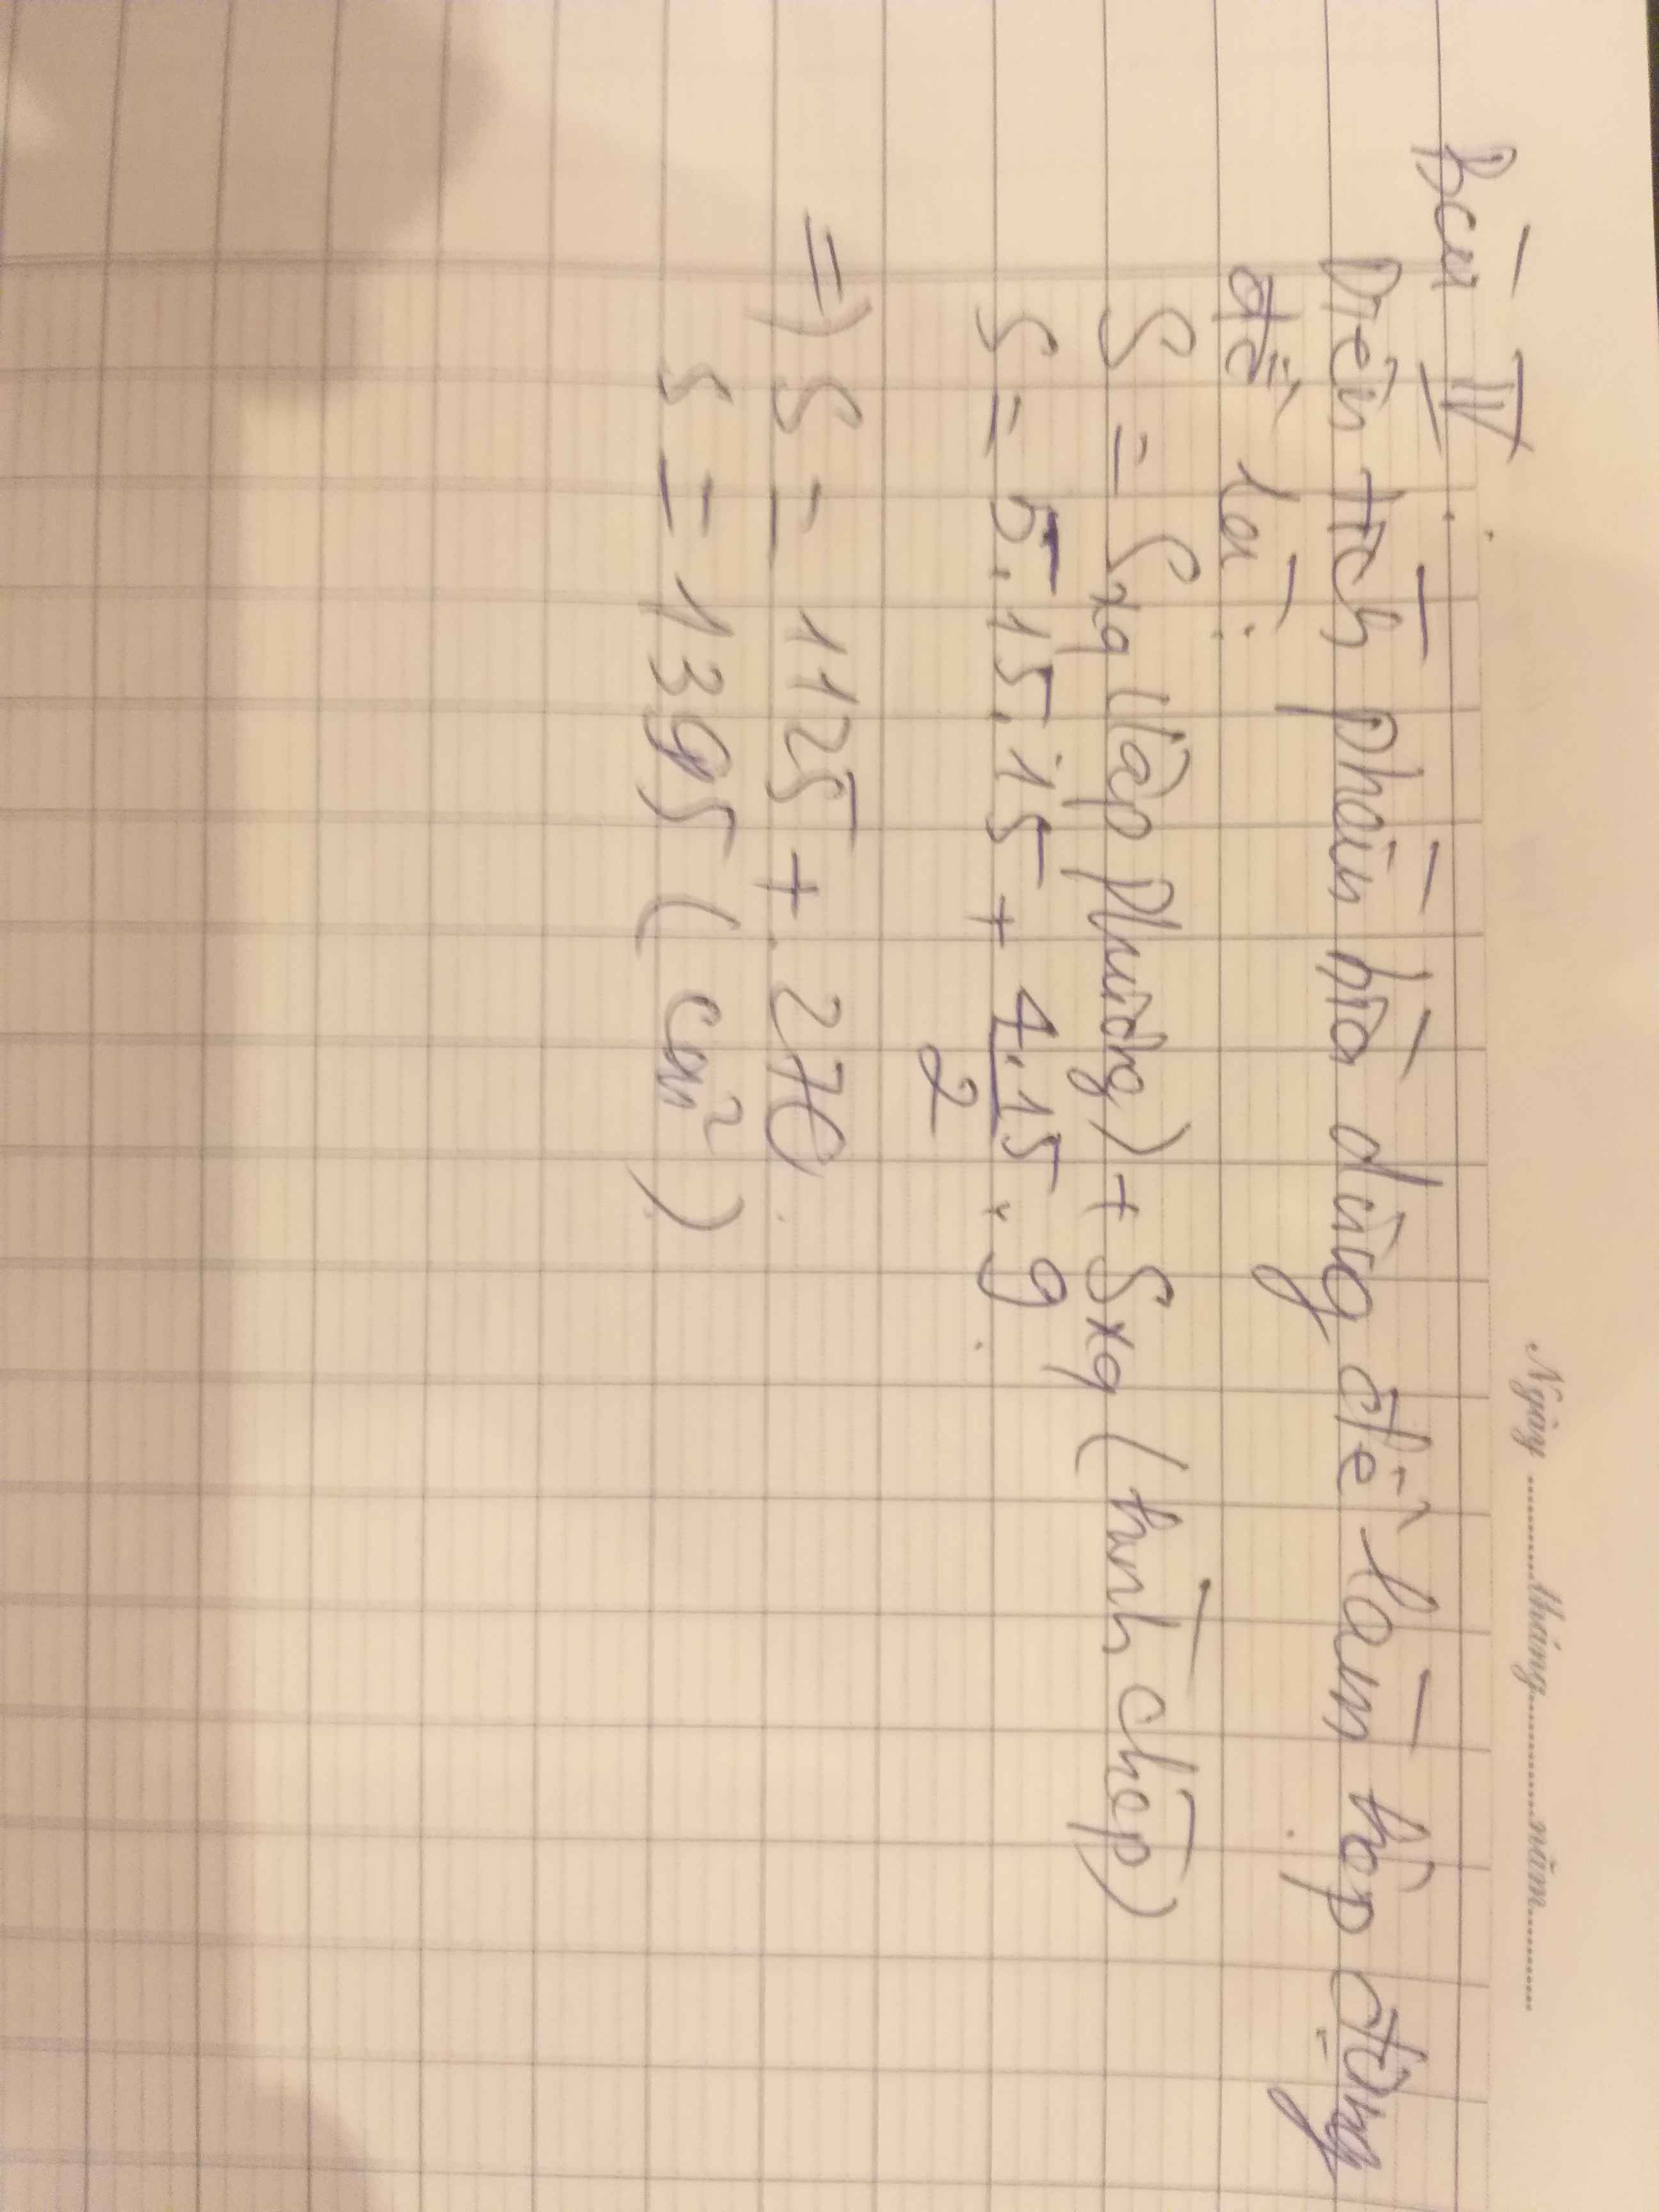 Ngày ............tháng............năm............
Bài IV:
Diện tích phần bìa dùng để làm hộp đựng
đế là:
S = Sxq (lập phương) + Sxq (hình chóp)
S = 5.15.15 + 4.15/2 . 9
=> S = 1125 + 270
S = 1395 (cm²)